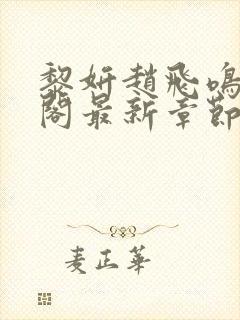 黎妍趙飛鳴
閣最新章節
麦正華